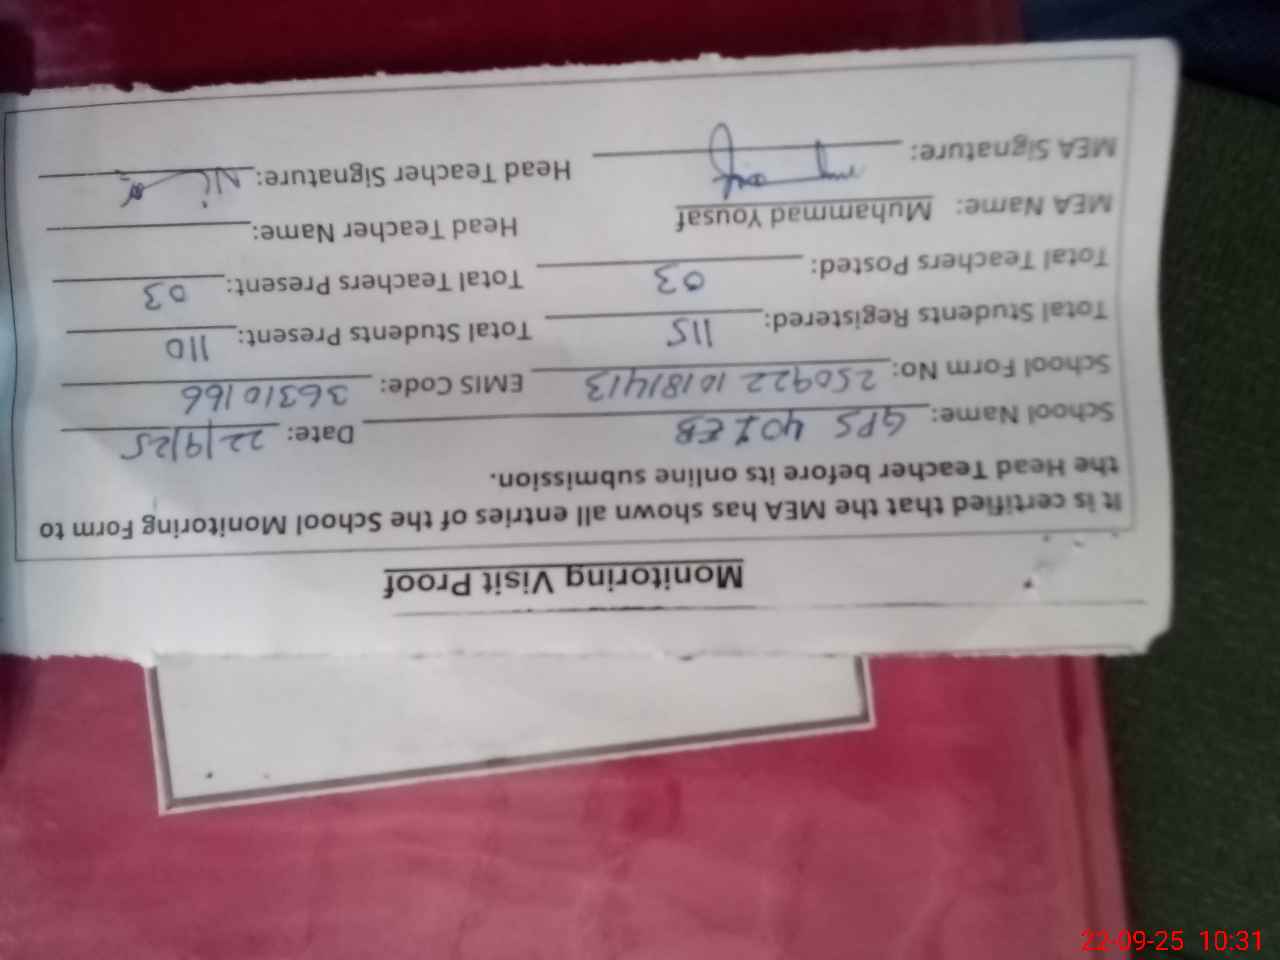 Monitoring Visit Proof
It is certified that the MEA has shown all entries of the School Monitoring Form to
the Head Teacher before its online submission.
School Name: GPS 401 EB Date: 22/9/25
School Form No: 250922 10181413 EMIS Code: 36310166
Total Students Registered: 115 Total Students Present: 110
Total Teachers Posted: 03 Total Teachers Present: 03
MEA Name: Muhammad Yousaf Head Teacher Name:
MEA Signature: Head Teacher Signature:
22-09-25 10:31